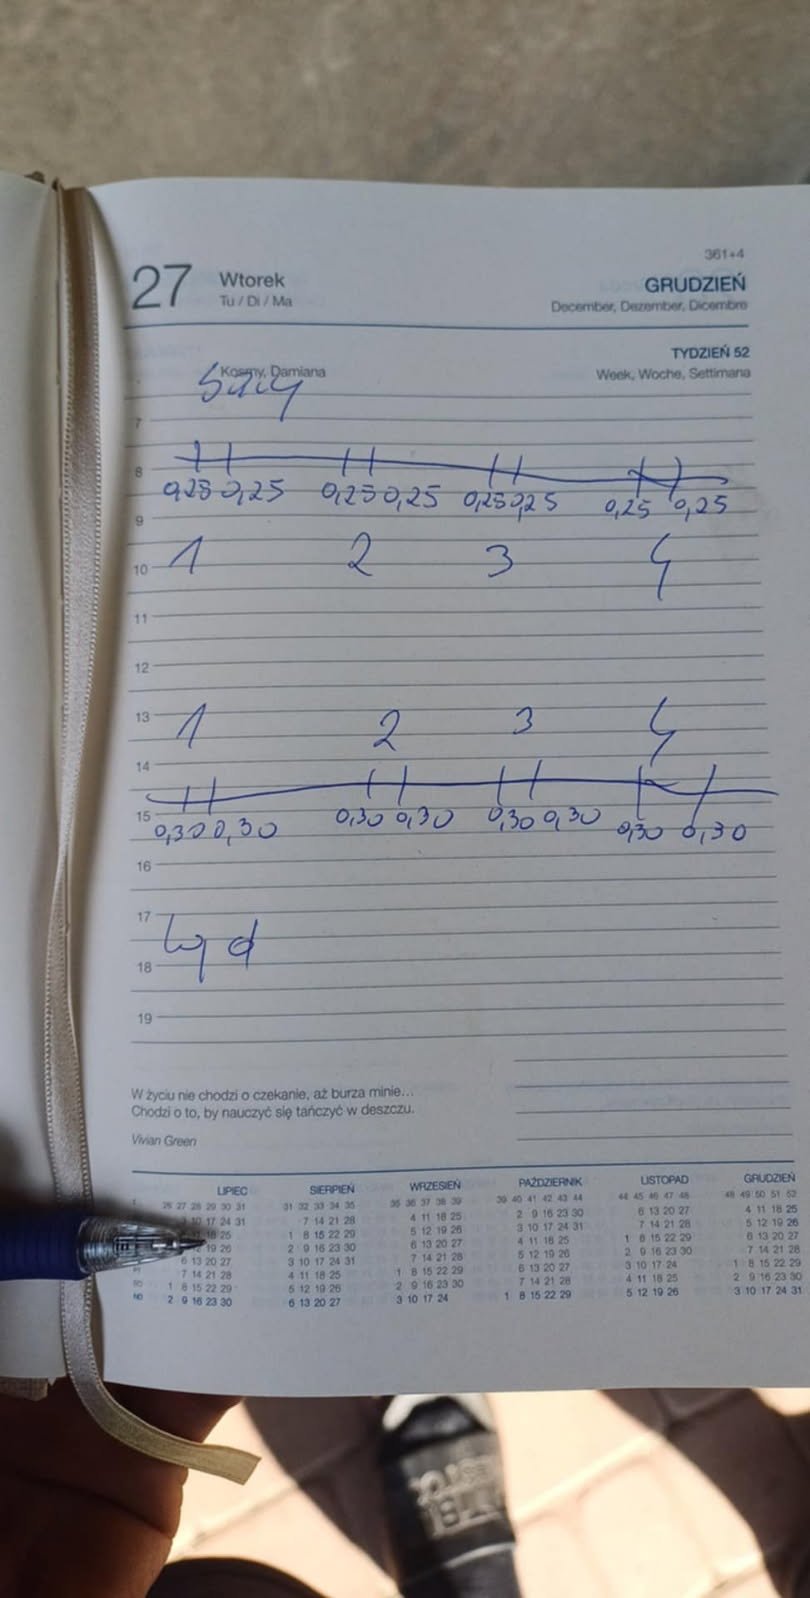 361+4
27 Wtorek GRUDZIEŃ
Tu / Di / Ma December, Dezember, Dicembre
TYDZIEŃ 52
Kosmy, Damiana Week, Woche, Settimana
7
8
0,25 0,25 0,25 0,25 0,25 0,25 0,25 0,25
9
1 2 3 4
10
11
12
13
1 2 3 4
14
15
0,30 0,30 0,30 0,30 0,30 0,30 0,30 0,30
16
17
18
19
W życiu nie chodzi o czekanie, aż burza minie...
Chodzi o to, by nauczyć się tańczyć w deszczu.
Vivian Green
LIPIEC SIERPIEŃ WRZESIEŃ PAŹDZIERNIK LISTOPAD GRUDZIEŃ
26 27 28 29 30 31 31 32 33 34 35 35 36 37 38 39 39 40 41 42 43 44 44 45 46 47 48 48 49 50 51 52
10 17 24 31 7 14 21 28 4 11 18 25 2 9 16 23 30 6 13 20 27 4 11 18 25
18 25 1 8 15 22 29 5 12 19 26 3 10 17 24 31 7 14 21 28 5 12 19 26
19 26 2 9 16 23 30 6 13 20 27 4 11 18 25 1 8 15 22 29 6 13 20 27
6 13 20 27 3 10 17 24 31 7 14 21 28 5 12 19 26 2 9 16 23 30 7 14 21 28
7 14 21 28 4 11 18 25 1 8 15 22 29 6 13 20 27 3 10 17 24 1 8 15 22 29
1 8 15 22 29 5 12 19 26 2 9 16 23 30 7 14 21 28 4 11 18 25 2 9 16 23 30
2 9 16 23 30 6 13 20 27 3 10 17 24 1 8 15 22 29 5 12 19 26 3 10 17 24 31